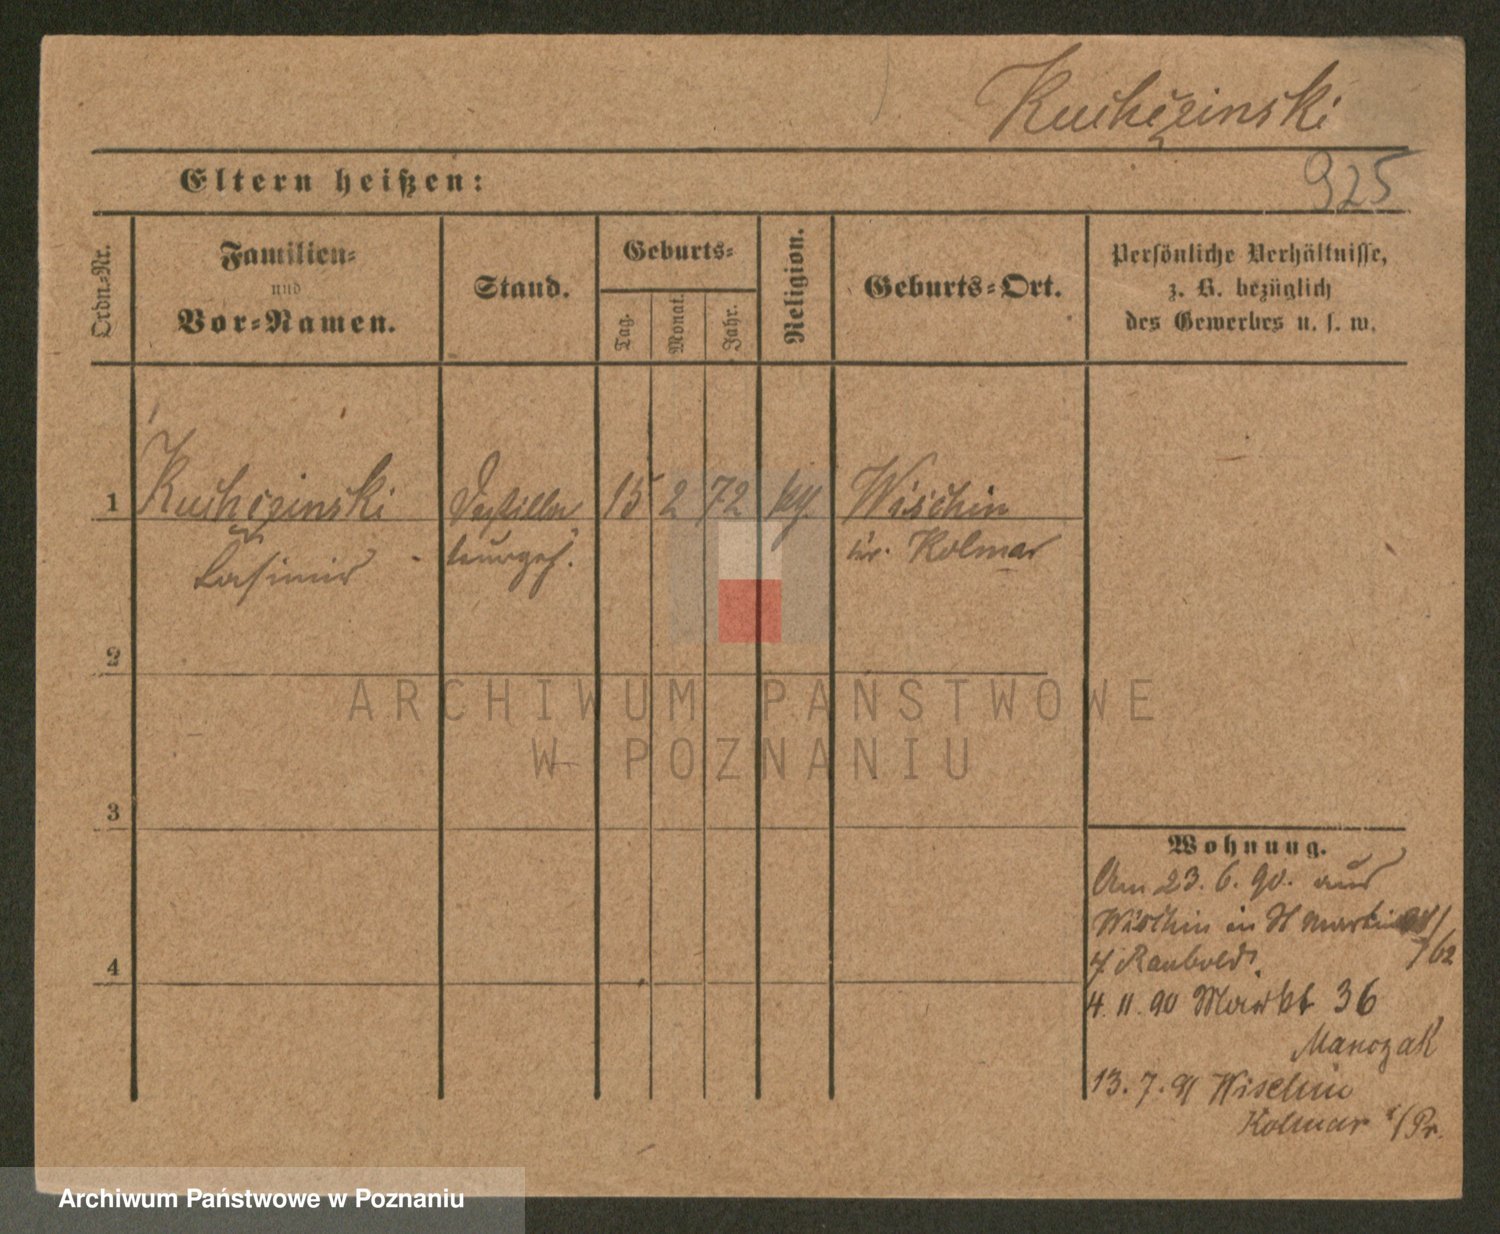 Kuchczinski
925
Eltern heißen:
Ordn.-Nr.
Familien-
und
Vor-Namen.
Stand.
Geburts-
Tag.
Monat.
Jahr.
Religion.
Geburts-Ort.
Persönliche Verhältnisse,
z. B. bezüglich
des Gewerbes u. s. w.
1 Kuchczinski 15 2 72 Wischin
Casimir Kolmar
2
ARCHIWUM PAŃSTWOWE
W POZNANIU
3
4
Wohnung.
Am 23. 6. 90. aus
Wischin in St Martin
62
4. 11. 90 Markt 36
Manczak
13. 7. 91 Wischin
Kolmar i/Pr.
Archiwum Państwowe w Poznaniu